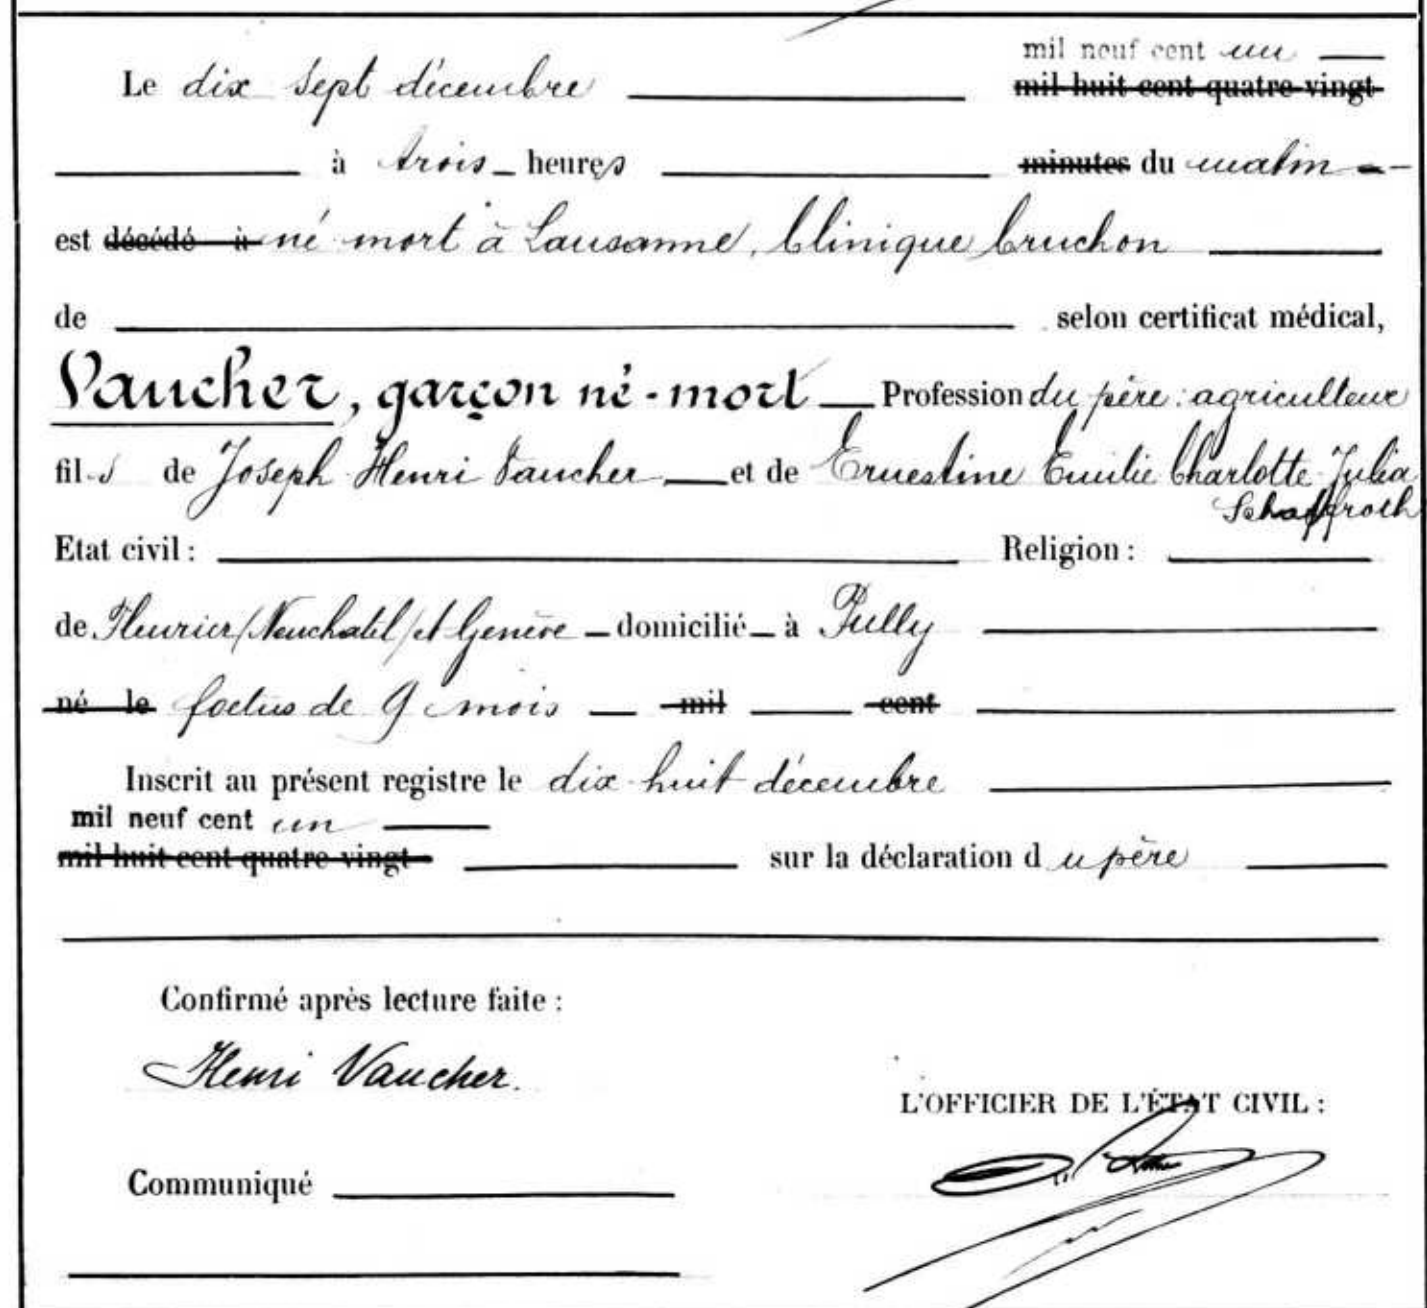 mil neuf cent un
Le dix sept décembre mil huit cent quatre-vingt
à trois heures minutes du matin
est décédé à né mort à Lausanne, Clinique Cruchon
de selon certificat médical,
Vaucher, garçon né-mort Profession du père: agriculteur
fils de Joseph Henri Vaucher et de Ernestine Emilie Charlotte Julia
Schaffroth
Etat civil : Religion :
de Fleurier (Neuchatel) et Genève domicilié à Pully
né le foetus de 9 mois mil cent
Inscrit au présent registre le dix-huit décembre
mil neuf cent un
mil huit cent quatre-vingt sur la déclaration du père
Confirmé après lecture faite :
Henri Vaucher.
L'OFFICIER DE L'ÉTAT CIVIL :
Communiqué